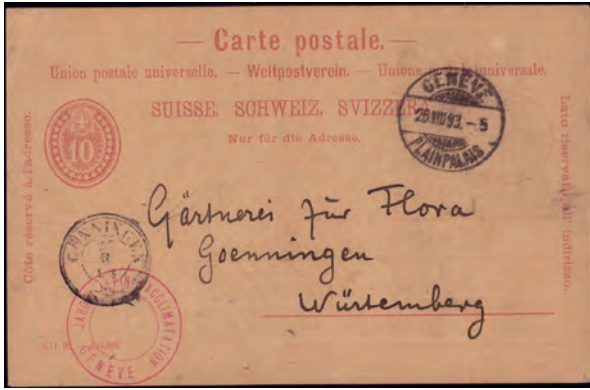 — Carte postale. —
Union postale universelle. — Weltpostverein. — Unione postale universale.
SUISSE. SCHWEIZ. SVIZZERA.
Nur für die Adresse.
Côte réservé à l'adresse.
Lato riservato all' indirizzo.
10
GENÈVE
26 VIII 93. – 5
PLAINPALAIS
Gärtnerei für Flora
Goenningen
Würtemberg
GÖNNINGEN
JARDIN ALPIN D'ACCLIMATATION
GENÈVE